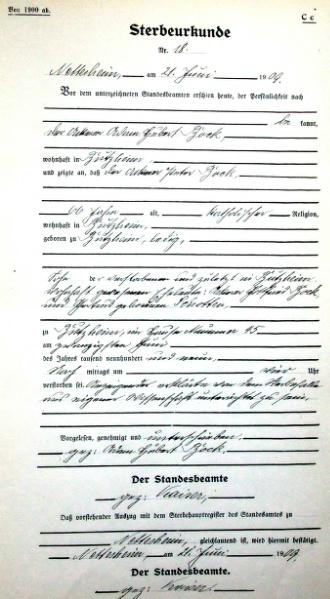 Von 1900 ab.
C c
Sterbeurkunde
Nr. 18.
Nettersheim, am 21. Juni 1909.
Vor dem unterzeichneten Standesbeamten erschien heute, der Persönlichkeit nach
be kannt,
der Ackerer Adam Hubert Zock,
wohnhaft in Zützheim
und zeigte an, daß der Ackerer Zock,
66 Jahre alt, katholischer Religion,
wohnhaft in Zützheim
geboren zu Zützheim, ledig,
Sohn der verstorbenen und zuletzt in Zützheim
wohnhaft gewesenen Eheleute: Ackerer Zock
und geborenen
zu Zützheim, im Hause Nummer 45
am zwanzigsten Juni
des Jahres tausend neunhundert und neun,
Nach mittags um vier Uhr
verstorben sei. Anzeigender erklärte von dem Sterbefalle
aus eigener Wissenschaft unterrichtet zu sein.
Vorgelesen, genehmigt und unterschrieben.
gez: Adam Hubert Zock.
Der Standesbeamte
gez: Kaiser.
Daß vorstehender Auszug mit dem Sterbehauptregister des Standesamtes zu
Nettersheim, gleichlautend ist, wird hiermit bestätigt.
Nettersheim, am 21. Juni 1909.
Der Standesbeamte.
gez: Kaiser.